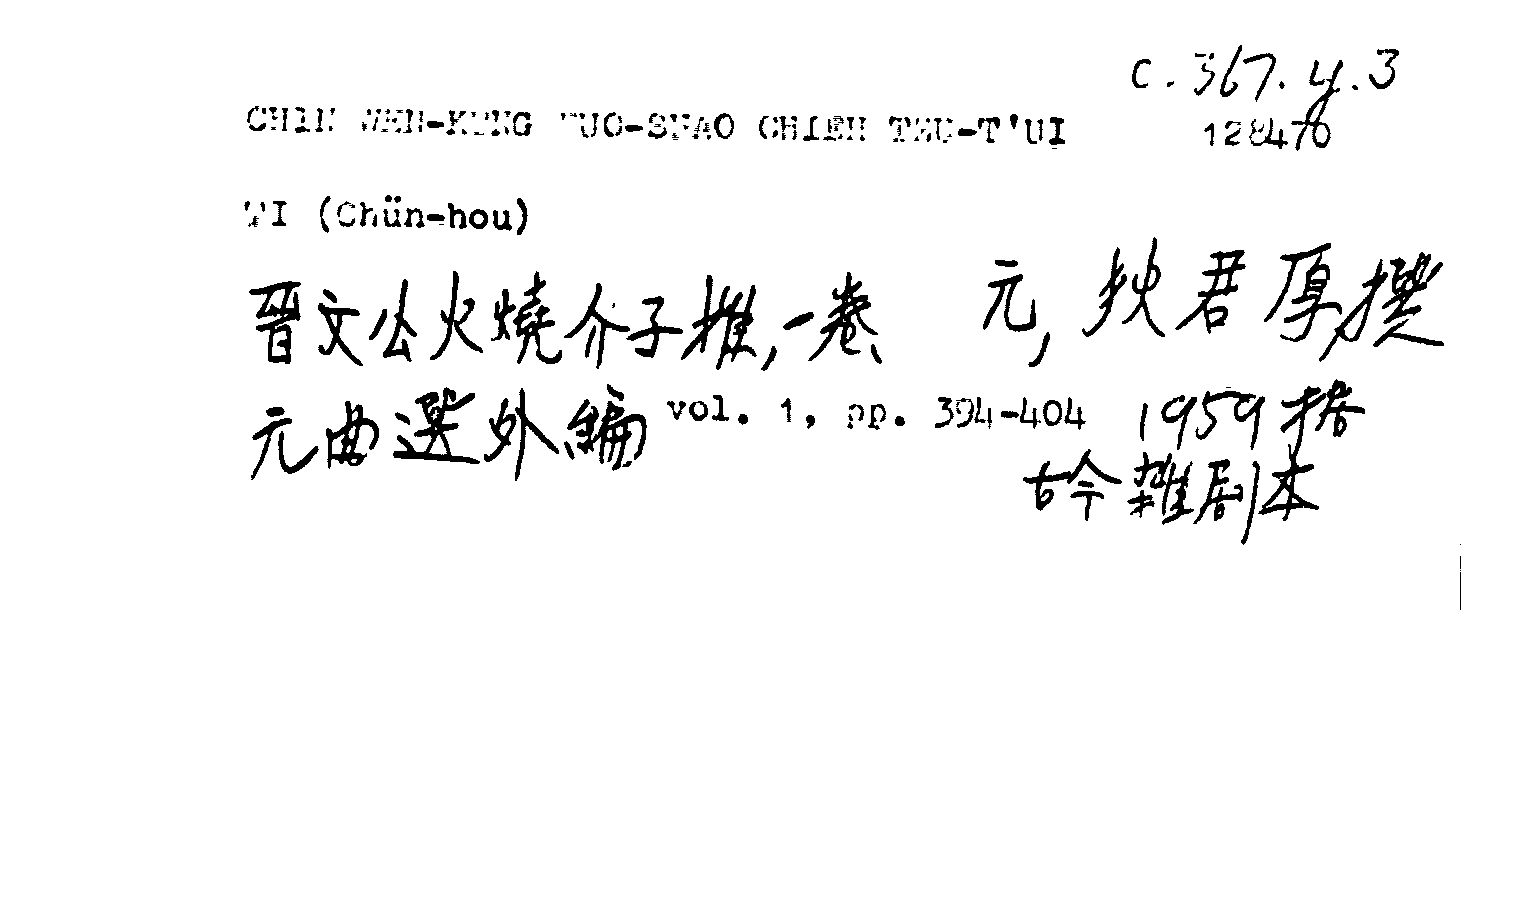 C.367.y.3
CHIN WEN-KUNG HUO-SHAO CHIEH TZU-T'UI 128470
TI (Chün-hou)
晉文公火燒介子推,一卷、 元,狄君厚撰
元曲選外編 vol. 1, pp. 394-404 1959据
古今雜剧本